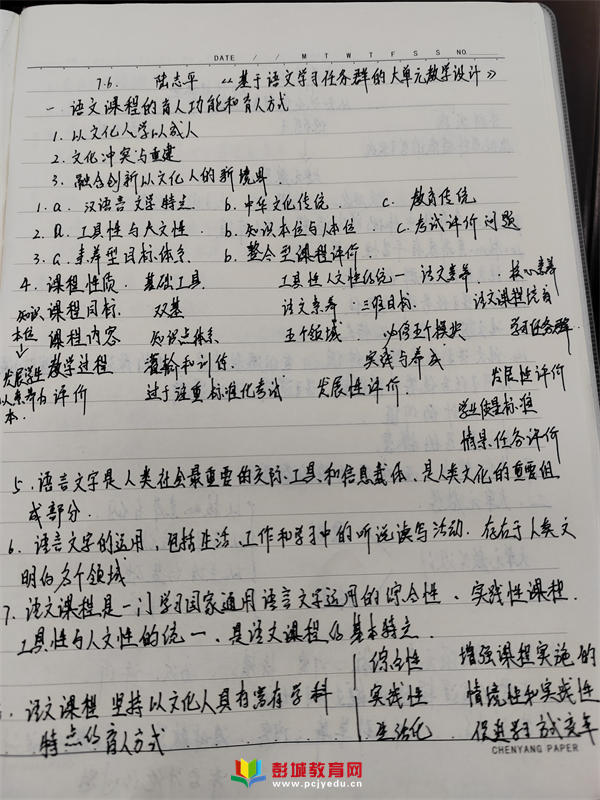 DATE / / M T W T F S S NO.
7.6. 陆志平 《基于语文学习任务群的大单元教学设计》
一 语文课程的育人功能和育人方式
1. 以文化人学以成人
2. 文化冲突与重建
3. 融合创新以文化人的新境界.
1. a. 汉语言文学特点 b. 中华文化传统. c. 教育传统
2. a. 工具性与人文性. b. 知识本位与人本位. c. 考试评价问题
3. a. 素养型目标体系 b. 整合型课程评价.
4. 课程性质. 基础工具 工具性人文性的统一 语文素养. 核心素养
知识 课程目标. 双基 语文素养. 三维目标. 语文课程培育
本位 课程内容 知识点体系 五个领域. 必修五个模块 学习任务群
↓ 教学过程 灌输和训练 实践与养成
发展学生
以素养为 评价 过于注重标准化考试 发展性评价. 发展性评价
本. 学业质量标准
情景任务评价
5. 语言文字是人类社会最重要的交际工具和信息载体. 是人类文化的重要组
成部分.
6. 语言文字的运用, 包括生活、工作和学习中的听说读写活动. 存在于人类文
明的各个领域
7. 语文课程是一门学习国家通用语言文字运用的综合性、实践性课程.
工具性与人文性的统一、是语文课程的基本特点.
语文课程 坚持以文化人具有富有学科 综合性 增强课程实施的
特点的育人方式. 实践性 情境性和实践性
生活化 促进学习方式变革
CHENYANG PAPER
彭城教育网
www.pcjyedu.cn